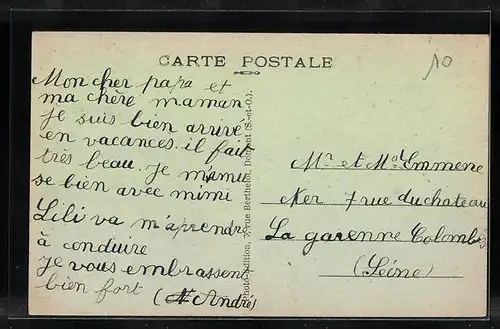 CARTE POSTALE
10
Mon cher papa et
ma chère maman
je suis bien arrivé
en vacances. il fait
très beau. Je m'amu
se bien avec mimi
Lili va m'aprendre
à conduire
je vous embrassent
bien fort
(André)
Photo-Edition, 7, rue Berthelet, Domont (S.-et-O.).
Mr et Md Emmene
Ker 7 rue du chateau
La garenne Colombes
(Seine)